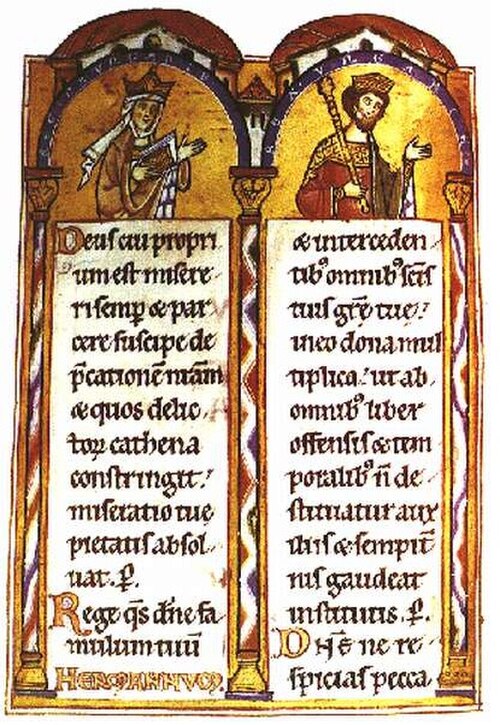 Deus cui propri
um est misere
ri semp̄ & par
cere suscipe de
p̄cationē nr̄am
& quos delic
toꝝ cathena
constringit!
miseratio tue
pietatis absol
uat. P̄.
Rege q̄s dn̄e fa
mulum tuū
HERMANNVM
& interceden
tibꝰ omnibꝰ scīs
tuis grē tue!
in eo dona mul
tiplica! ut ab
omnibꝰ liber
offensis & tem
poralibꝰ n̄ de
stituatur aux
iliis & sempit̄
nis gaudeat
institutis. P̄.
ne re
spicias pecca